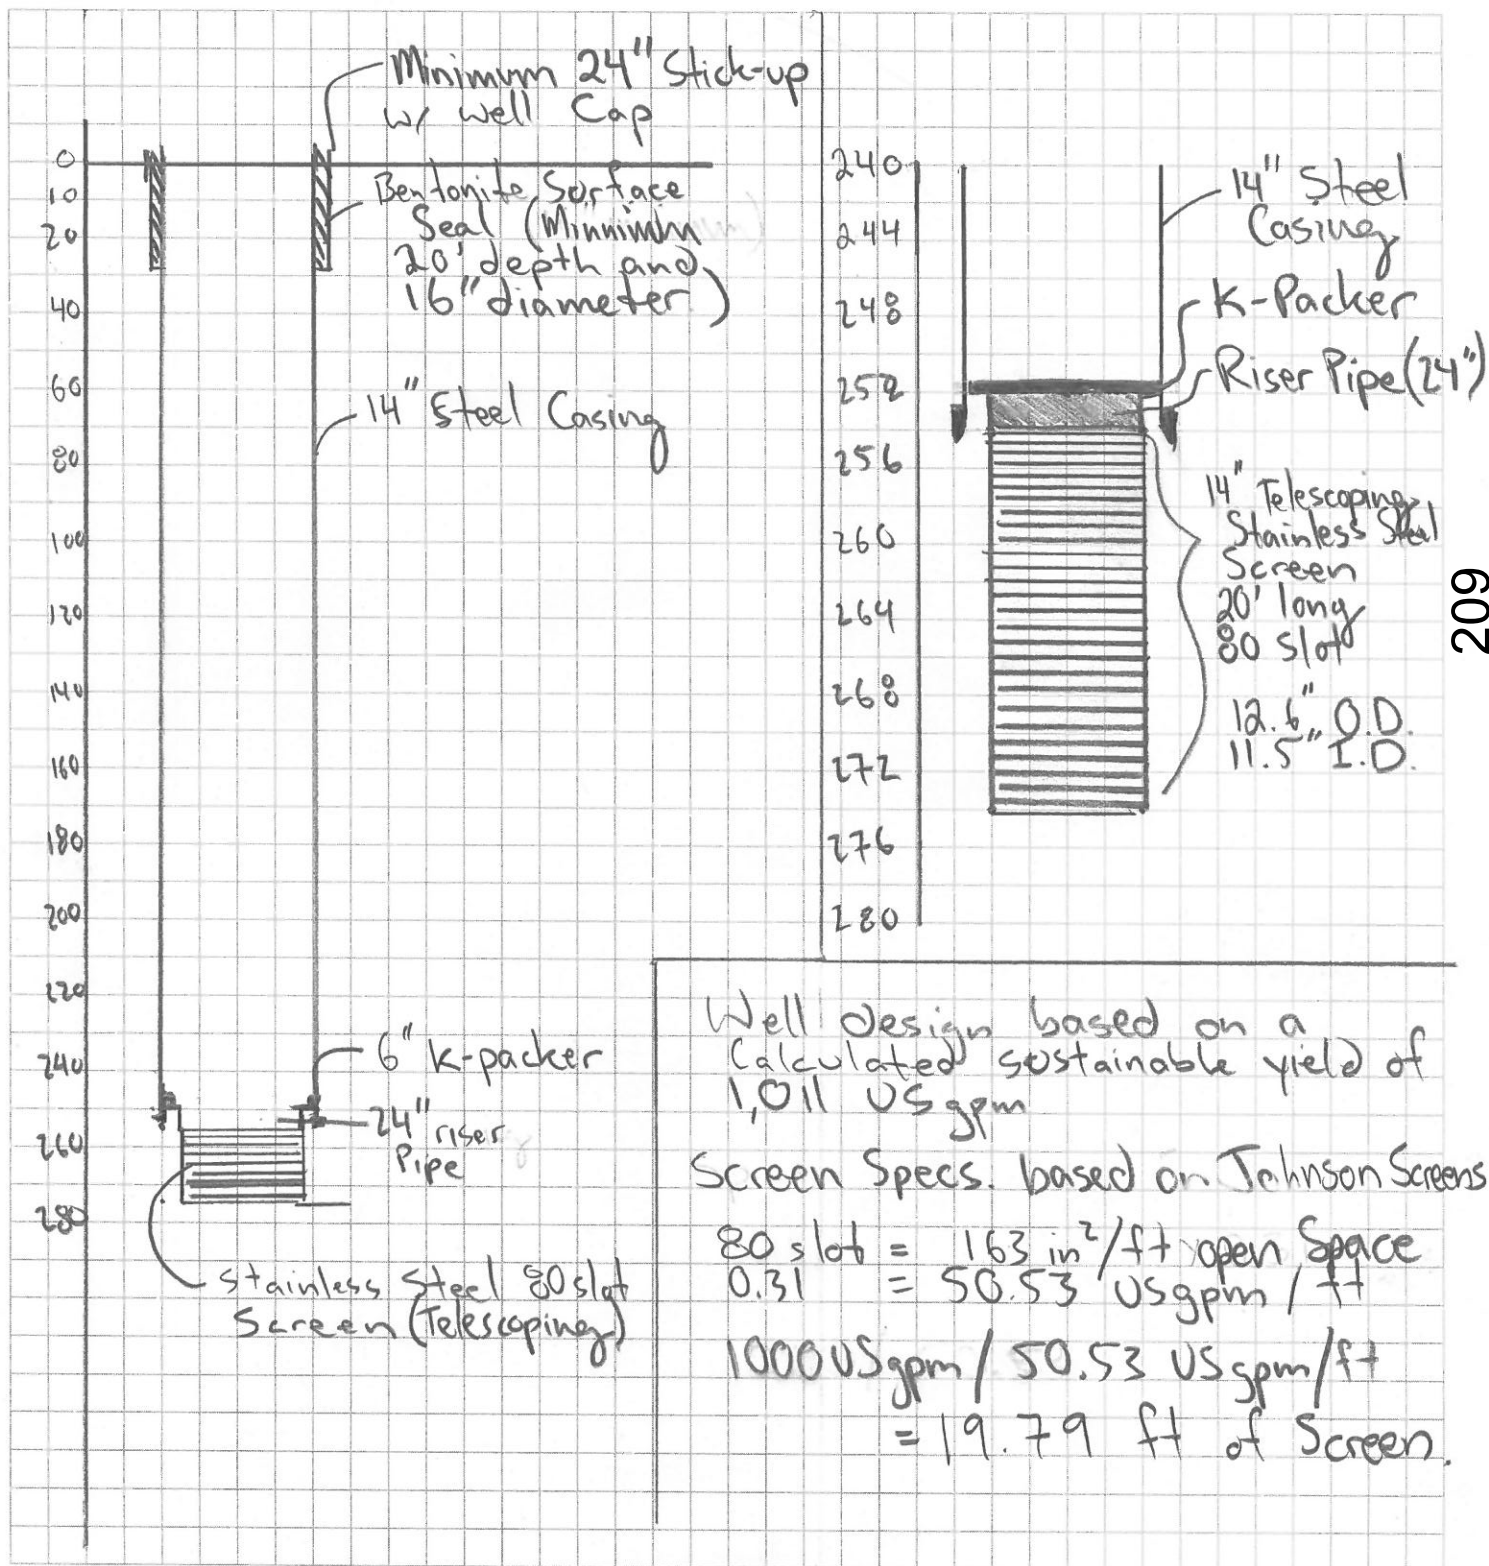 Minimum 24" Stick-up
w/ Well Cap
0
10
20
40
60
80
100
120
140
160
180
200
220
240
260
280
Bentonite Surface
Seal (Minnimum
20' depth and
16" diameter)
14" Steel Casing
6" K-packer
24" riser
Pipe
Stainless Steel 80 slot
Screen (Telescoping)
240
244
248
252
256
260
264
268
272
276
280
14" Steel
Casing
K-Packer
Riser Pipe (24")
14" Telescoping
Stainless Steel
Screen
20' long
80 slot
12.6" O.D.
11.5" I.D.
209
Well design based on a
Calculated sustainable yield of
1,011 USgpm
Screen Specs. based on Johnson Screens
80 slot = 163 in²/ft open Space
0.31 = 50.53 USgpm/ft
1000 USgpm / 50.53 USgpm/ft
= 19.79 ft of Screen.